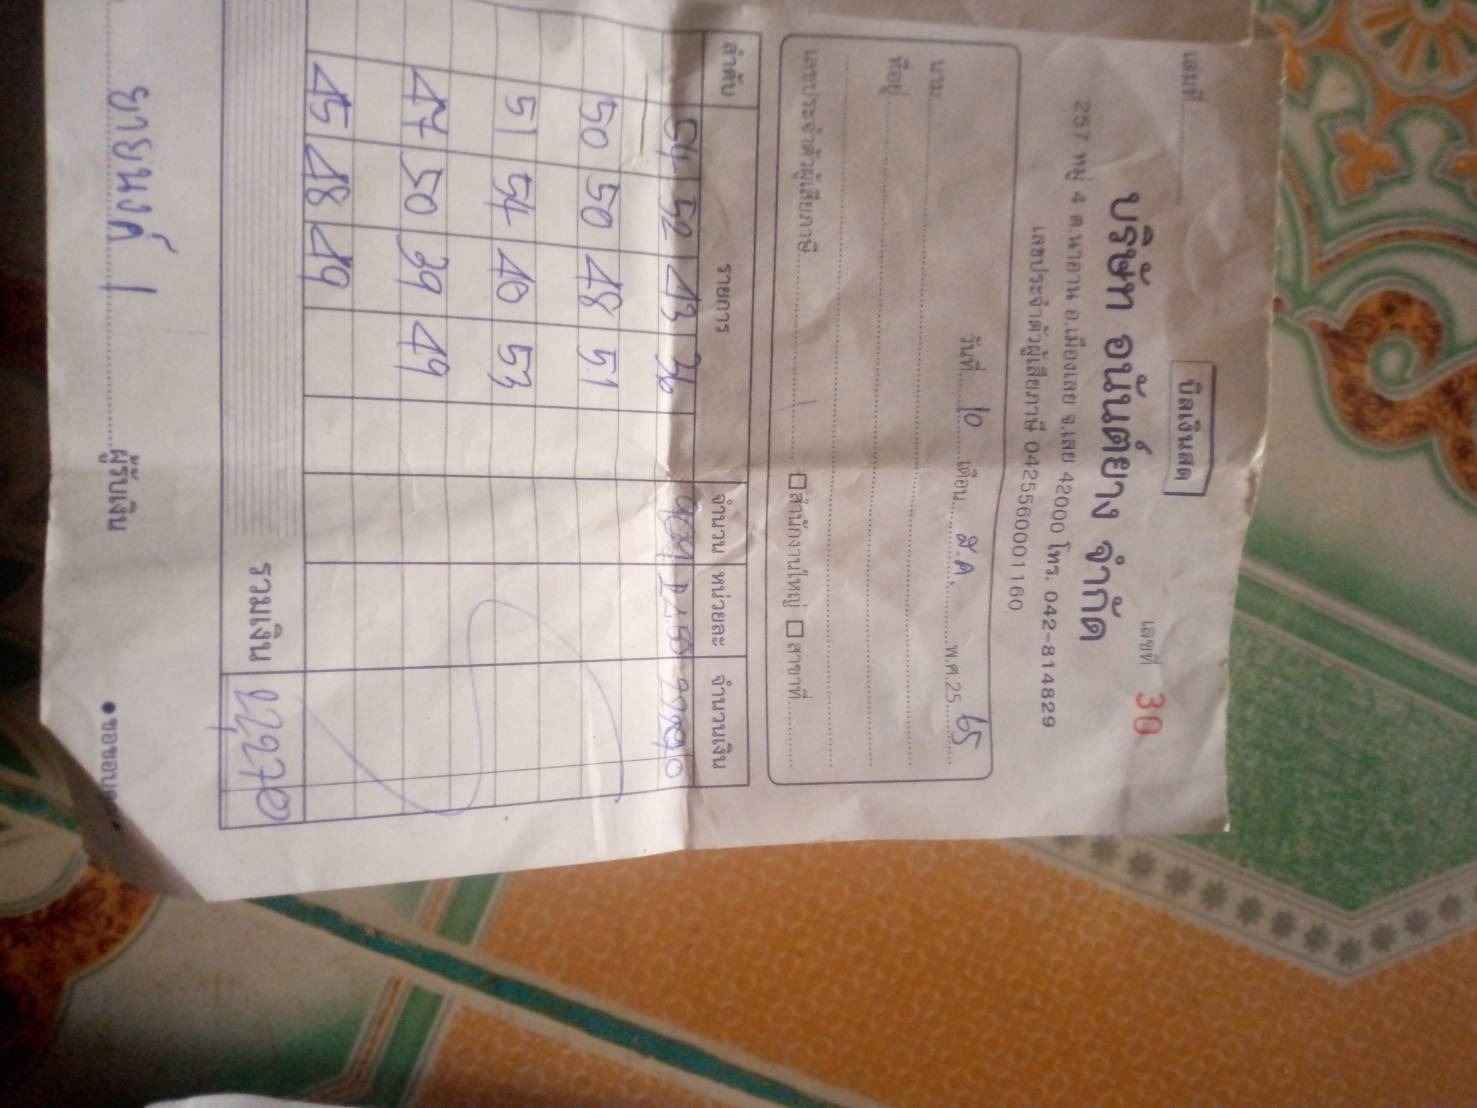 เล่มที่
บิลเงินสด
เลขที่ 30
บริษัท อนันต์ยาง จำกัด
257 หมู่ 4 ต.นาอาน อ.เมืองเลย จ.เลย 42000 โทร. 042-814829
เลขประจำตัวผู้เสียภาษี 0425560001160
วันที่ 10 เดือน ส.ค. พ.ศ.25 65
นาม
ที่อยู่
เลขประจำตัวผู้เสียภาษี สำนักงานใหญ่ สาขาที่
ลำดับ รายการ จำนวน หน่วยละ จำนวนเงิน
54 52 43 36
50 50 48 51
51 54 40 53
47 50 39 49
45 48 49
รวมเงิน
ยายนงค์ ผู้รับเงิน